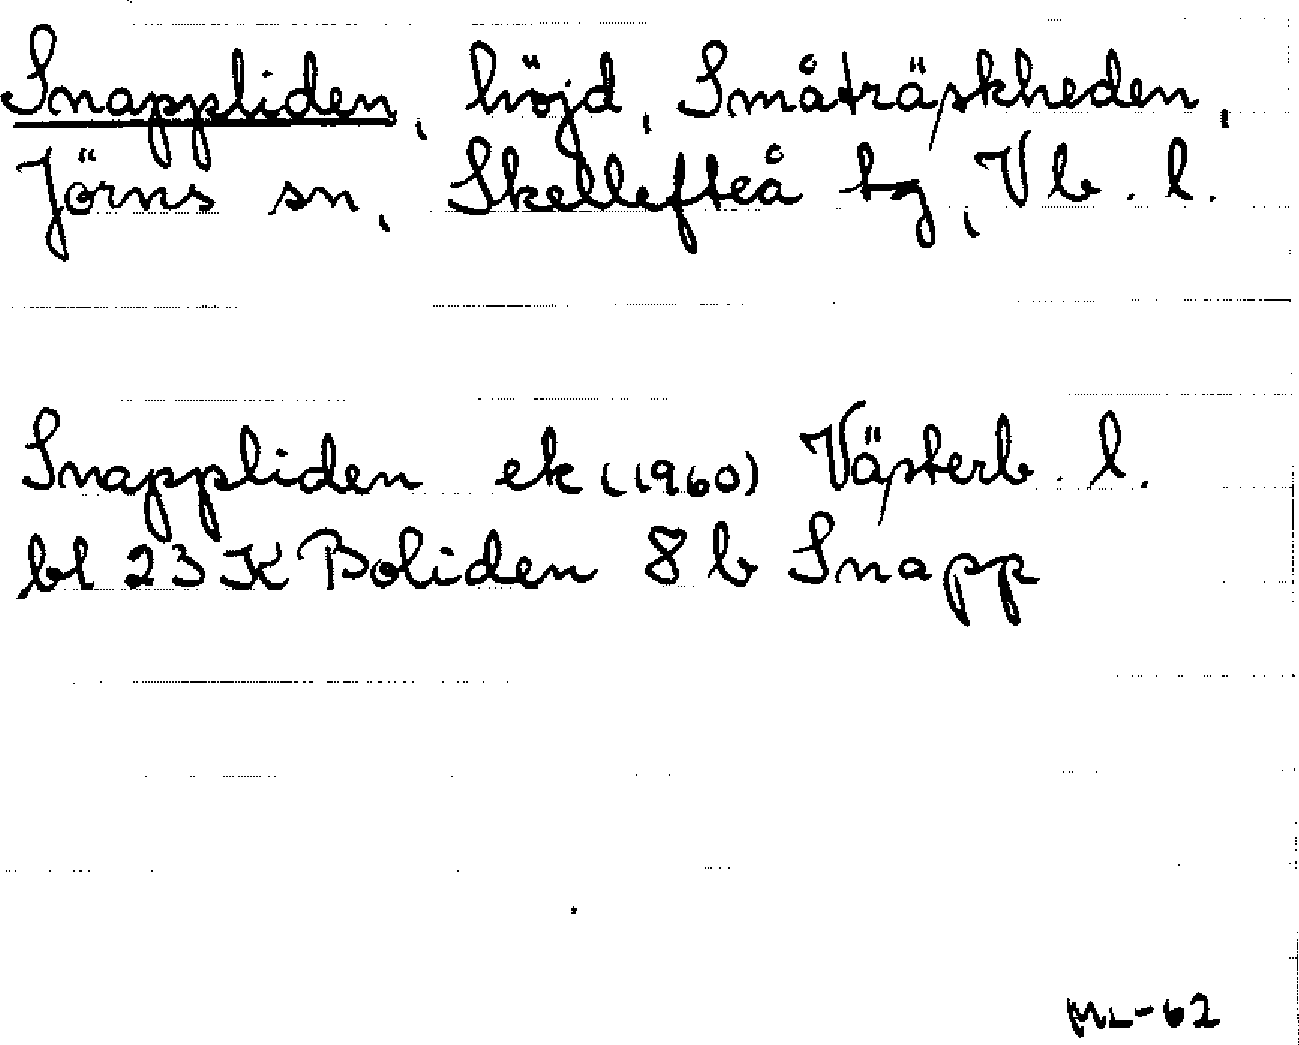 Snappliden, höjd, Småträskheden,
Jörns sn, Skellefteå tg, Vb. l.
Snappliden ek (1960) Västerb. l.
bl 23 K Boliden 8 b Snapp
ML-62